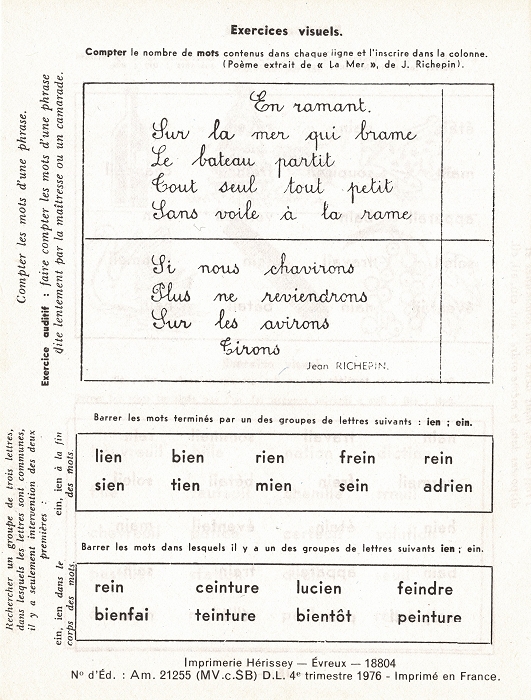 Exercices visuels.
Compter le nombre de mots contenus dans chaque ligne et l'inscrire dans la colonne.
(Poème extrait de « La Mer », de J. Richepin).
Compter les mots d'une phrase.
Exercice auditif : faire compter les mots d'une phrase
dite lentement par la maîtresse ou un camarade.
En ramant.
Sur la mer qui brame
Le bateau partit
Tout seul tout petit
Sans voile à la rame
Si nous chavirons
Plus ne reviendrons
Sur les avirons
Tirons
Jean RICHEPIN.
Rechercher un groupe de trois lettres,
dans lesquels les lettres sont communes,
il y a seulement intervention des deux
premières :
ein, ien à la fin
des mots.
Barrer les mots terminés par un des groupes de lettres suivants : ien ; ein.
lien bien rien frein rein
sien tien mien sein adrien
ein, ien dans le
corps des mots.
Barrer les mots dans lesquels il y a un des groupes de lettres suivants ien ; ein.
rein ceinture lucien feindre
bienfai teinture bientôt peinture
Imprimerie Hérissey — Évreux — 18804
No d'Éd. : Am. 21255 (MV.c.SB) D.L. 4e trimestre 1976 - Imprimé en France.